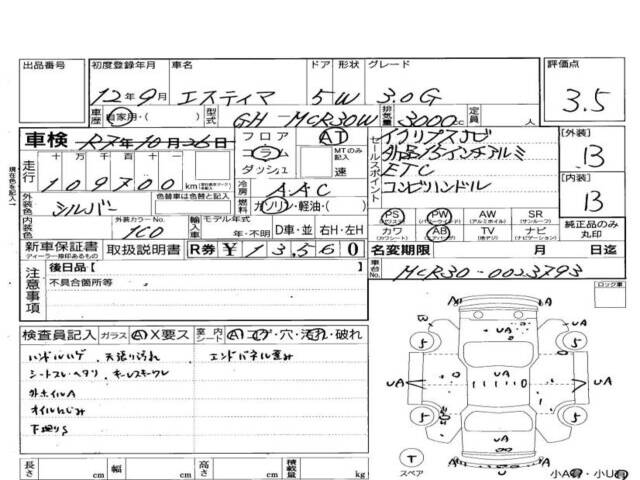 出品番号 初度登録年月 車名 ドア 形状 グレード 評価点
12年9月 エスティマ 5W 3.0G 3.5
車歴 自家用・( ) 型式 GH-MCR30W 排気量 3000cc 定員 人
車検 R7年10月26日 フロア AT
コラム MTのみ記入
ダッシュ 速
セールスポイント イクリプスナビ
外品15インチアルミ
ETC
コンビハンドル
[外装] B
[内装] B
現在色を記入
走行 十万 万 千 百 十 一
109700km
冷房 AAC
外装色 シルバー 色替車は色替と記入 燃料 ガソリン・軽油・( )
内装色 外装カラーNo. 1C0 輸入車 モデル年式 年・不明 D車・並 右H・左H
PS (パワーステアリング) PW (パワーウインド) AW (アルミホイル) SR (サンルーフ)
カワ (カワシート) AB (エアバッグ) TV (地デジ) ナビ (ナビゲーション)
純正品のみ丸印
新車保証書 ディーラー捺印あるもの 取扱説明書 R券 ¥13,560 名変期限 月 日迄
注意事項 後日品[ ]
不具合箇所等
車台No. MCR30-0023793
ロック車
検査員記入 ガラス A X要ス 室内シート A コゲ・穴・汚れ・破れ
ハンドルハゲ 天張り汚れ エンドパネル歪み
シートスレ・ヘタリ キーレスキーワレ
外ホイルA
オイルにじみ
下廻りS
5 5 5 5
A UA UA
T スペア
小A・小U
長さ cm 幅 cm 高さ cm 積載量 kg